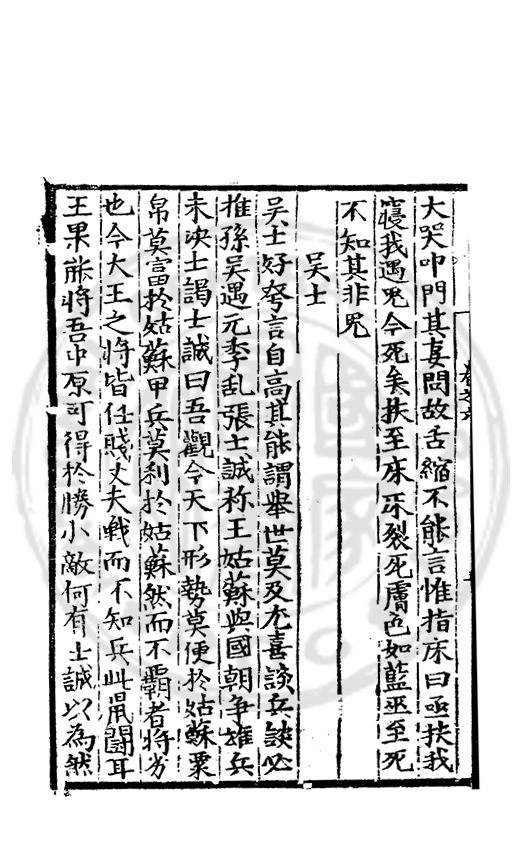 大哭叩門其妻問故舌縮不能言惟指床曰亟扶我
寢我遇鬼今死矣扶至床牙裂死膚色如藍巫至死
不知其非鬼
吳士
吳士好夸言自高其能謂舉世莫及尤喜談兵談必
推孫吳遇元季乱張士誠称王姑蘇與國朝争雄兵
未决士謁士誠曰吾觀今天下形勢莫便於姑蘇粟
帛莫富於姑蘇甲兵莫利於姑蘇然而不霸者将劣
也今大王之将皆任賤丈夫戰而不知兵此鼠鬪耳
王果能将吾中原可得於勝小敵何有士誠以為然